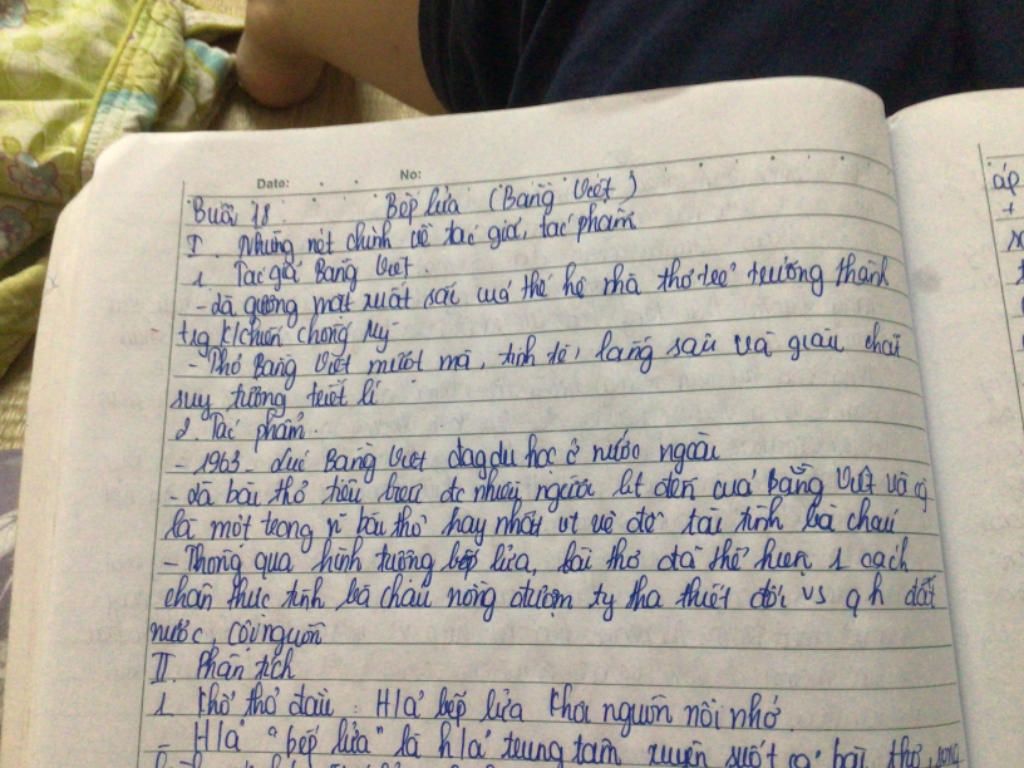 Date: No:
Buổi 18 Bếp lửa (Bằng Việt)
I. Những nét chính về tác giả, tác phẩm
1. Tác giả Bằng Việt.
- Là gương mặt xuất sắc của thế hệ nhà thơ trẻ trưởng thành
trg k/chiến chống Mỹ
- Thơ Bằng Việt mượt mà, tinh tế, lắng sâu và giàu chất
suy tưởng triết lí
2. Tác phẩm.
- 1963 - lúc Bằng Việt đag du học ở nước ngoài
- Là bài thơ tiêu biểu đc nhiều người bit đến của Bằng Việt và cg
là một trong n~ bài thơ hay nhất vt về đề tài tình bà cháu
- Thông qua hình tượng bếp lửa, bài thơ đã thể hiện 1 cách
chân thực tình bà cháu nồng đượm ty tha thiết đối vs qh đất
nước, cội nguồn
II. Phân tích
1. Khổ thơ đầu: H/ả bếp lửa khơi nguồn nỗi nhớ.
- H/ả "bếp lửa" là h/ả trung tâm xuyên suốt cả bài thơ, song
áp
+